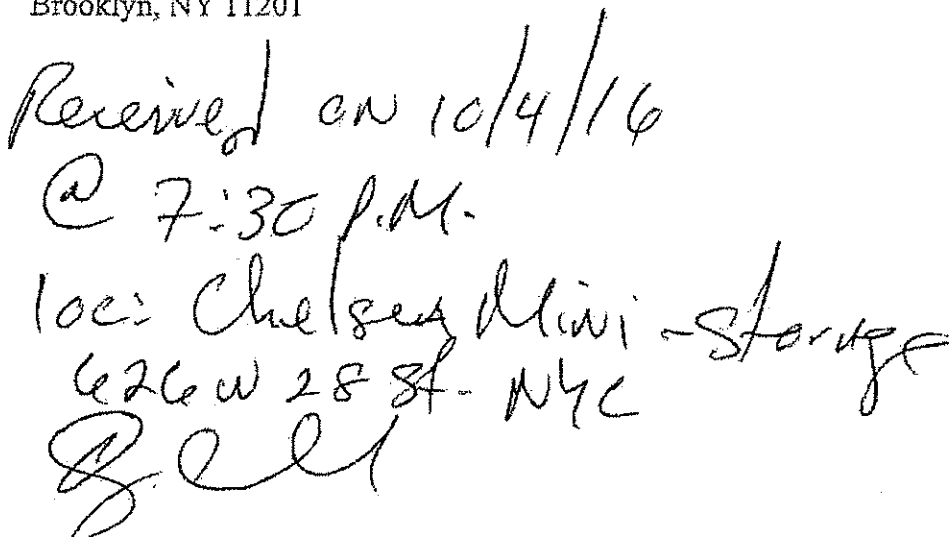 Brooklyn, NY 11201
Received on 10/4/16
@ 7:30 P.M.
loc: Chelsea Mini-Storage
626 W 28 St. NYC